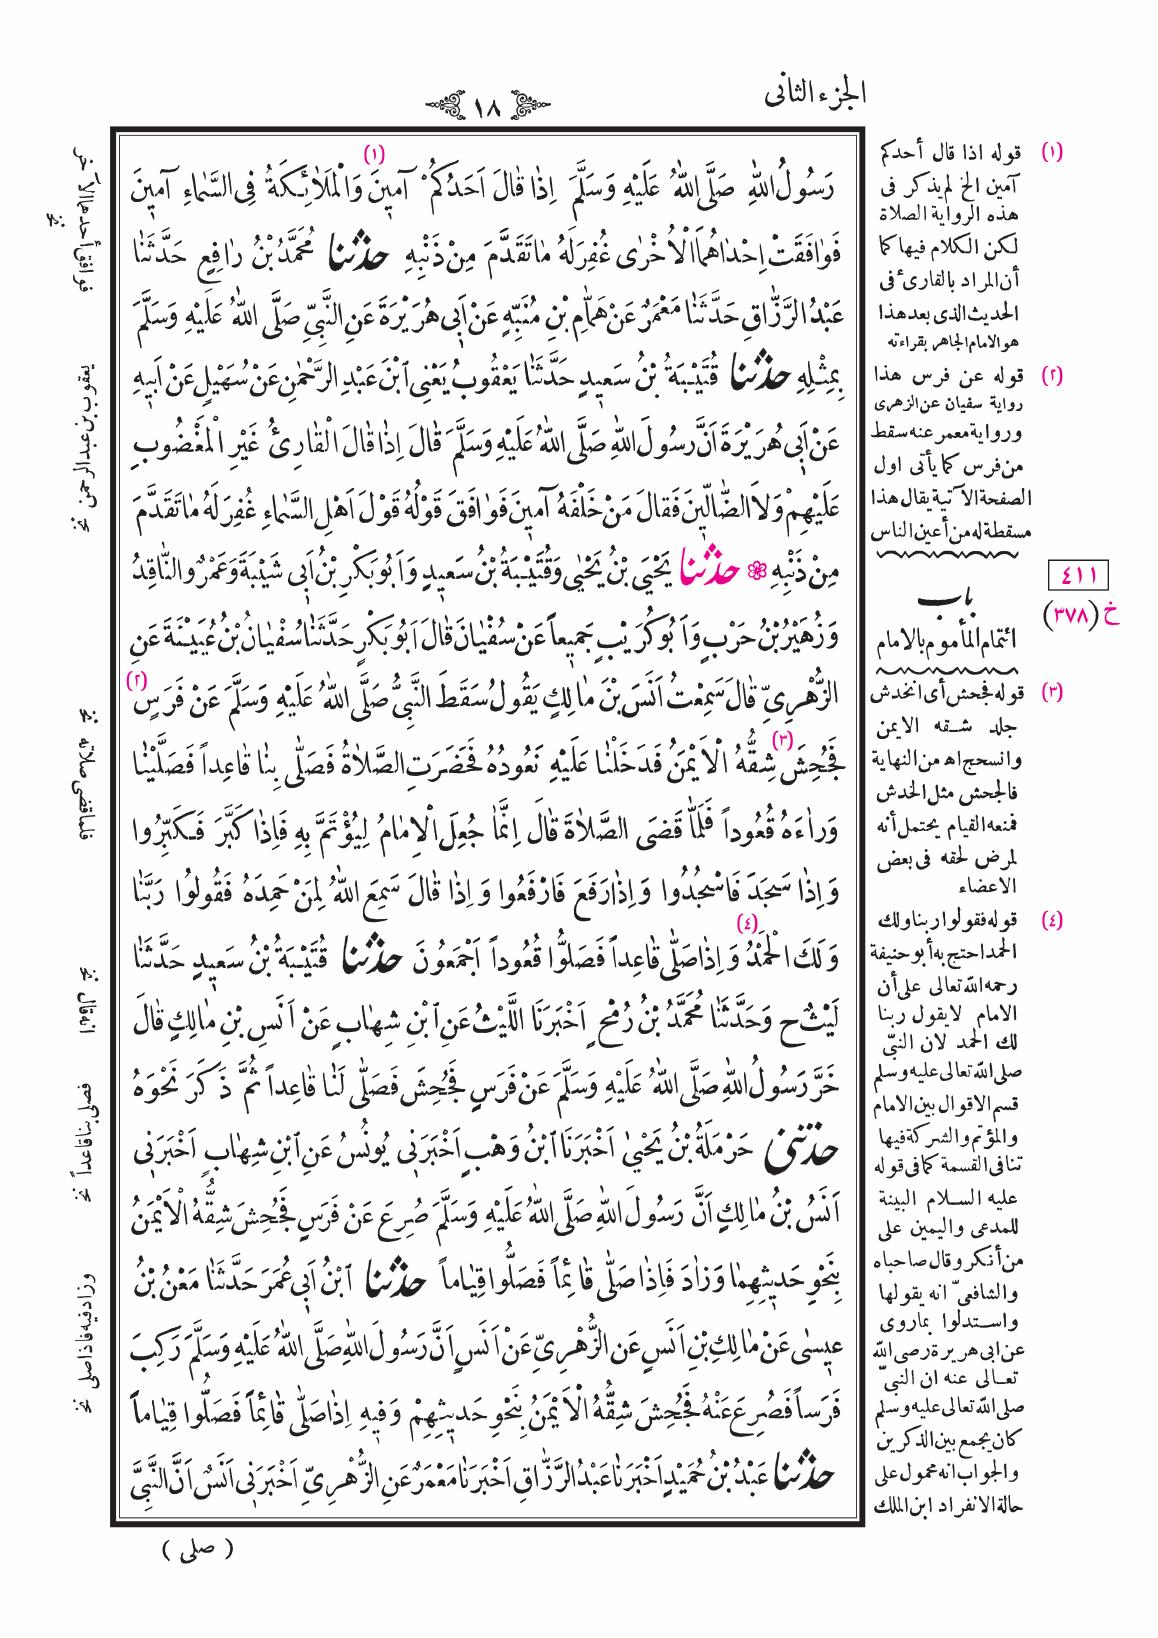 الجزء الثانى
١٨
رَسُولُ اللهِ صَلَّى اللهُ عَلَيْهِ وَسَلَّمَ اِذَا قَالَ اَحَدُكُمْ (١) آمِينَ وَالْمَلَائِكَةُ فِى السَّمَاءِ آمِينَ
فَوَافَقَتْ اِحْدَاهُمَا الْاُخْرَى غُفِرَ لَهُ مَا تَقَدَّمَ مِنْ ذَنْبِهِ حَدَّثَنَا مُحَمَّدُ بْنُ رَافِعٍ حَدَّثَنَا
عَبْدُ الرَّزَّاقِ حَدَّثَنَا مَعْمَرٌ عَنْ هَمَّامِ بْنِ مُنَبِّهٍ عَنْ اَبِى هُرَيْرَةَ عَنِ النَّبِىِّ صَلَّى اللهُ عَلَيْهِ وَسَلَّمَ
بِمِثْلِهِ حَدَّثَنَا قُتَيْبَةُ بْنُ سَعِيدٍ حَدَّثَنَا يَعْقُوبُ يَعْنِى ابْنَ عَبْدِ الرَّحْمٰنِ عَنْ سُهَيْلٍ عَنْ اَبِيهِ
عَنْ اَبِى هُرَيْرَةَ اَنَّ رَسُولَ اللهِ صَلَّى اللهُ عَلَيْهِ وَسَلَّمَ قَالَ اِذَا قَالَ الْقَارِئُ غَيْرِ الْمَغْضُوبِ
عَلَيْهِمْ وَلَا الضَّالِّينَ فَقَالَ مَنْ خَلْفَهُ آمِينَ فَوَافَقَ قَوْلُهُ قَوْلَ اَهْلِ السَّمَاءِ غُفِرَ لَهُ مَا تَقَدَّمَ
مِنْ ذَنْبِهِ ❁ حَدَّثَنَا يَحْيَى بْنُ يَحْيٰى وَقُتَيْبَةُ بْنُ سَعِيدٍ وَاَبُو بَكْرِ بْنُ اَبِى شَيْبَةَ وَعَمْرٌو النَّاقِدُ
وَزُهَيْرُ بْنُ حَرْبٍ وَاَبُو كُرَيْبٍ جَمِيعاً عَنْ سُفْيَانَ قَالَ اَبُو بَكْرٍ حَدَّثَنَا سُفْيَانُ بْنُ عُيَيْنَةَ عَنِ
الزُّهْرِىِّ قَالَ سَمِعْتُ اَنَسَ بْنَ مَالِكٍ يَقُولُ سَقَطَ النَّبِىُّ صَلَّى اللهُ عَلَيْهِ وَسَلَّمَ عَنْ فَرَسٍ (٢)
فَجُحِشَ (٣) شِقُّهُ الْاَيْمَنُ فَدَخَلْنَا عَلَيْهِ نَعُودُهُ فَحَضَرَتِ الصَّلَاةُ فَصَلَّى بِنَا قَاعِداً فَصَلَّيْنَا
وَرَاءَهُ قُعُوداً فَلَمَّا قَضَى الصَّلَاةَ قَالَ اِنَّمَا جُعِلَ الْاِمَامُ لِيُؤْتَمَّ بِهِ فَاِذَا كَبَّرَ فَكَبِّرُوا
وَاِذَا سَجَدَ فَاسْجُدُوا وَاِذَا رَفَعَ فَارْفَعُوا وَاِذَا قَالَ سَمِعَ اللهُ لِمَنْ حَمِدَهُ فَقُولُوا رَبَّنَا
وَلَكَ الْحَمْدُ (٤) وَاِذَا صَلَّى قَاعِداً فَصَلُّوا قُعُوداً اَجْمَعُونَ حَدَّثَنَا قُتَيْبَةُ بْنُ سَعِيدٍ حَدَّثَنَا
لَيْثٌ ح وَحَدَّثَنَا مُحَمَّدُ بْنُ رُمْحٍ اَخْبَرَنَا اللَّيْثُ عَنِ ابْنِ شِهَابٍ عَنْ اَنَسِ بْنِ مَالِكٍ قَالَ
خَرَّ رَسُولُ اللهِ صَلَّى اللهُ عَلَيْهِ وَسَلَّمَ عَنْ فَرَسٍ فَجُحِشَ فَصَلَّى لَنَا قَاعِداً ثُمَّ ذَكَرَ نَحْوَهُ
حَدَّثَنِى حَرْمَلَةُ بْنُ يَحْيٰى اَخْبَرَنَا ابْنُ وَهْبٍ اَخْبَرَنِى يُونُسُ عَنِ ابْنِ شِهَابٍ اَخْبَرَنِى
اَنَسُ بْنُ مَالِكٍ اَنَّ رَسُولَ اللهِ صَلَّى اللهُ عَلَيْهِ وَسَلَّمَ صُرِعَ عَنْ فَرَسٍ فَجُحِشَ شِقُّهُ الْاَيْمَنُ
بِنَحْوِ حَدِيثِهِمَا وَزَادَ فَاِذَا صَلَّى قَائِماً فَصَلُّوا قِيَاماً حَدَّثَنَا ابْنُ اَبِى عُمَرَ حَدَّثَنَا مَعْنُ بْنُ
عِيسٰى عَنْ مَالِكِ بْنِ اَنَسٍ عَنِ الزُّهْرِىِّ عَنْ اَنَسٍ اَنَّ رَسُولَ اللهِ صَلَّى اللهُ عَلَيْهِ وَسَلَّمَ رَكِبَ
فَرَساً فَصُرِعَ عَنْهُ فَجُحِشَ شِقُّهُ الْاَيْمَنُ بِنَحْوِ حَدِيثِهِمْ وَفِيهِ اِذَا صَلَّى قَائِماً فَصَلُّوا قِيَاماً
حَدَّثَنَا عَبْدُ بْنُ حُمَيْدٍ اَخْبَرَنَا عَبْدُ الرَّزَّاقِ اَخْبَرَنَا مَعْمَرٌ عَنِ الزُّهْرِىِّ اَخْبَرَنِى اَنَسٌ اَنَّ النَّبِىَّ
( صلى )
(١) قوله اذا قال أحدكم
آمين الخ لم يذكر فى
هذه الرواية الصلاة
لكن الكلام فيها كما
أن المراد بالقارئ فى
الحديث الذى بعد هذا
هو الامام الجاهر بقراءته
(٢) قوله عن فرس هذا
رواية سفيان عن الزهرى
ورواية معمر عنه سقط
من فرس كما يأتى اول
الصفحة الآتية يقال هذا
مسقطة له من أعين الناس
٤١١
باب
خ (٣٧٨)
ائتمام المأموم بالامام
(٣) قوله فجحش أى انخدش
جلد شقه الايمن
وانسحج اه من النهاية
فالجحش مثل الخدش
فمنعه القيام يحتمل أنه
لمرض لحقه فى بعض
الاعضاء
(٤) قوله فقولوا ربنا ولك
الحمد احتج به أبو حنيفة
رحمه الله تعالى على أن
الامام لا يقول ربنا
لك الحمد لان النبىّ
صلى الله تعالى عليه وسلم
قسم الاقوال بين الامام
والمؤتم والشركة فيها
تنافى القسمة كما فى قوله
عليه السلام البينة
للمدعى واليمين على
من أنكر وقال صاحباه
والشافعىّ انه يقولها
واستدلوا بماروى
عن ابى هريرة رضى الله
تعالى عنه ان النبىّ
صلى الله تعالى عليه وسلم
كان يجمع بين الذكرين
والجواب انه محمول على
حالة الانفراد ابن الملك
فوافق أحدهما الآخر نخ
يعقوب بن عبد الرحمن نخ
فلما قضى صلاته نخ
انه قال نخ
فصلى بنا قاعداً نخ
وزاد فيه فاذا صلى نخ